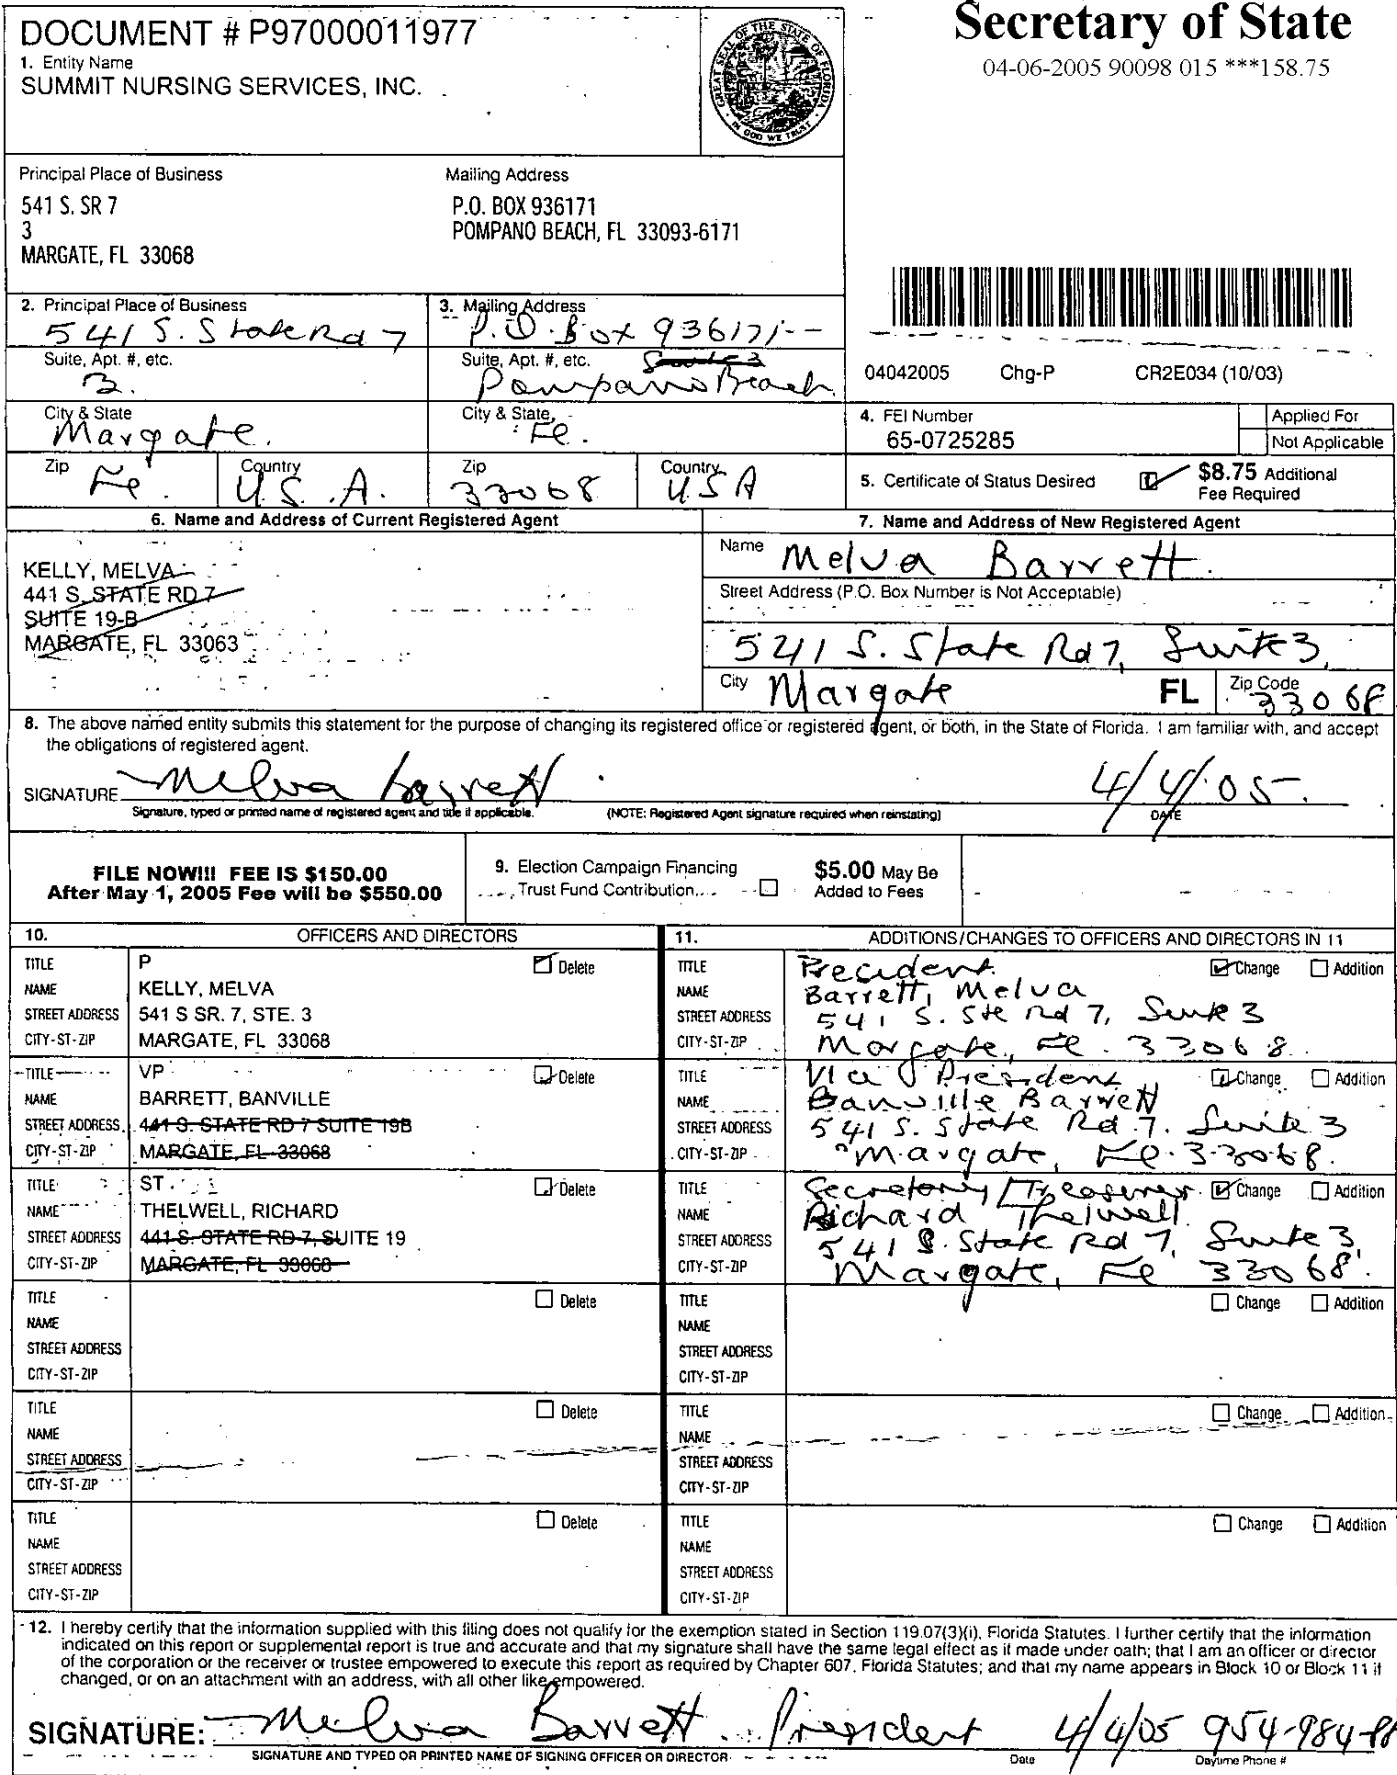 DOCUMENT # P97000011977
1. Entity Name
SUMMIT NURSING SERVICES, INC.
GREAT SEAL OF THE STATE OF FLORIDA
IN GOD WE TRUST
Secretary of State
04-06-2005 90098 015 ***158.75
Principal Place of Business
541 S. SR 7
3
MARGATE, FL 33068
Mailing Address
P.O. BOX 936171
POMPANO BEACH, FL 33093-6171
2. Principal Place of Business
541 S. State Rd 7
3. Mailing Address
P.O. Box 936171
Suite, Apt. #, etc.
3.
Suite, Apt. #, etc. Suite 3
Pompano Beach
City & State
Margate.
City & State
Fl.
Zip
Fl.
Country
U.S.A.
Zip
33068
Country
USA
04042005 Chg-P CR2E034 (10/03)
4. FEI Number
65-0725285
Applied For
Not Applicable
5. Certificate of Status Desired
$8.75 Additional
Fee Required
6. Name and Address of Current Registered Agent
KELLY, MELVA
441 S. STATE RD 7
SUITE 19-B
MARGATE, FL 33063
7. Name and Address of New Registered Agent
Name Melva Barrett.
Street Address (P.O. Box Number is Not Acceptable)
541 S. State Rd 7, Suite 3,
City Margate FL Zip Code 33068
8. The above named entity submits this statement for the purpose of changing its registered office or registered agent, or both, in the State of Florida. I am familiar with, and accept
the obligations of registered agent.
SIGNATURE Melva Barrett 4/4/05.
Signature, typed or printed name of registered agent and title if applicable. (NOTE: Registered Agent signature required when reinstating) DATE
FILE NOW!!! FEE IS $150.00
After May 1, 2005 Fee will be $550.00
9. Election Campaign Financing
Trust Fund Contribution.
$5.00 May Be
Added to Fees
10. OFFICERS AND DIRECTORS
11. ADDITIONS/CHANGES TO OFFICERS AND DIRECTORS IN 11
TITLE P Delete
NAME KELLY, MELVA
STREET ADDRESS 541 S SR. 7, STE. 3
CITY-ST-ZIP MARGATE, FL 33068
TITLE President Change Addition
NAME Barrett, Melva
STREET ADDRESS 541 S. Ste Rd 7, Suite 3
CITY-ST-ZIP Margate, Fl. 33068
TITLE VP Delete
NAME BARRETT, BANVILLE
STREET ADDRESS 441 S. STATE RD 7 SUITE 19B
CITY-ST-ZIP MARGATE, FL 33068
TITLE President Change Addition
NAME Banville Barrett
STREET ADDRESS 541 S. State Rd 7. Suite 3
CITY-ST-ZIP Margate, Fl. 33068.
TITLE ST Delete
NAME THELWELL, RICHARD
STREET ADDRESS 441 S. STATE RD 7, SUITE 19
CITY-ST-ZIP MARGATE, FL 33068
TITLE Secretary/Treasurer Change Addition
NAME Richard Thelwell
STREET ADDRESS 541 S. State Rd 7, Suite 3,
CITY-ST-ZIP Margate, Fl 33068.
TITLE Delete
NAME
STREET ADDRESS
CITY-ST-ZIP
TITLE Change Addition
NAME
STREET ADDRESS
CITY-ST-ZIP
TITLE Delete
NAME
STREET ADDRESS
CITY-ST-ZIP
TITLE Change Addition
NAME
STREET ADDRESS
CITY-ST-ZIP
TITLE Delete
NAME
STREET ADDRESS
CITY-ST-ZIP
TITLE Change Addition
NAME
STREET ADDRESS
CITY-ST-ZIP
12. I hereby certify that the information supplied with this filing does not qualify for the exemption stated in Section 119.07(3)(i), Florida Statutes. I further certify that the information
indicated on this report or supplemental report is true and accurate and that my signature shall have the same legal effect as if made under oath; that I am an officer or director
of the corporation or the receiver or trustee empowered to execute this report as required by Chapter 607, Florida Statutes; and that my name appears in Block 10 or Block 11 if
changed, or on an attachment with an address, with all other like empowered.
SIGNATURE: Melva Barrett President 4/4/05 954-984-
SIGNATURE AND TYPED OR PRINTED NAME OF SIGNING OFFICER OR DIRECTOR Date Daytime Phone #